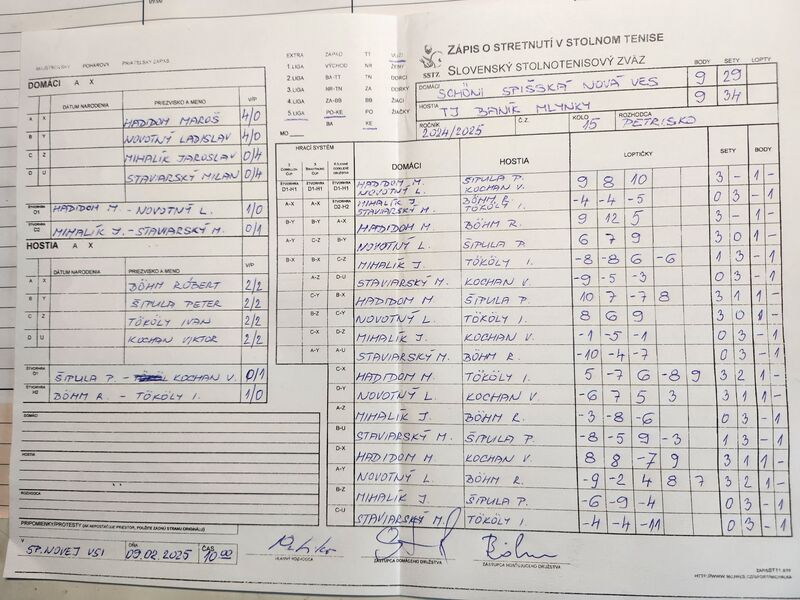 MAJSTROVSKÝ POHÁROVÝ PRIATEĽSKÝ ZÁPAS
EXTRA ZÁPAD TT MUŽI
1.LIGA VÝCHOD NR ŽENY
2.LIGA BA-TT TN DORCI
3.LIGA NR-TN ZA DORKY
4.LIGA ZA-BB BB ŽIACI
5.LIGA PO-KE PO ŽIAČKY
BA KE
MO
ZÁPIS O STRETNUTÍ V STOLNOM TENISE
SSTZ SLOVENSKÝ STOLNOTENISOVÝ ZVÄZ
BODY SETY LOPTY
DOMÁCI SCHÖNI SPIŠSKÁ NOVÁ VES 9 29
HOSTIA TJ BANÍK MLYNKY 9 34
ROČNÍK 2024/2025 Č.Z. KOLO 15 ROZHODCA PETRISKO
DOMÁCI A X
DÁTUM NARODENIA PRIEZVISKO A MENO V/P
A X HADIDOM MAROŠ 4/0
B Y NOVOTNÝ LADISLAV 4/0
C Z MIHALÍK JAROSLAV 0/4
D U STAVIARSKÝ MILAN 0/4
ŠTVORHRA D1 HADIDOM M - NOVOTNÝ L. 1/0
ŠTVORHRA D2 MIHALÍK J. - STAVIARSKÝ M. 0/1
HOSTIA A X
DÁTUM NARODENIA PRIEZVISKO A MENO V/P
A X BÖHM RÓBERT 2/2
B Y ŠIPULA PETER 2/2
C Z TÖKÖLY IVAN 2/2
D U KOCHAN VIKTOR 2/2
ŠTVORHRA ŠIPULA P. - KOCHAN V. 0/1
ŠTVORHRA H2 BÖHM R - TÖKÖLY I. 1/0
DOMÁCI
HOSTIA
ROZHODCA
PRIPOMIENKY/PROTESTY (AK NEPOSTAČUJE PRIESTOR, POUŽITE ZADNÚ STRANU ORIGINÁLU)
HRACÍ SYSTÉM
DOMÁCI HOSTIA LOPTIČKY SETY BODY
ŠTVORHRA D1-H1 ŠTVORHRA D1-H1 ŠTVORHRA D1-H1 HADIDOM M. NOVOTNÝ L. ŠIPULA P. KOCHAN V. 9 8 10 3 - 1 -
A-X A-X ŠTVORHRA D2-H2 MIHALÍK J. STAVIARSKÝ M. BÖHM R TÖKÖLY I. -4 -4 -5 0 3 - 1
B-Y B-Y A-X HADIDOM M BÖHM R. 9 12 5 3 - 1 -
A-Y C-Z B-Y NOVOTNÝ L. ŠIPULA P. 6 7 9 3 0 1 -
B-X B-X C-Z MIHALÍK J. TÖKÖLY I. -8 -8 6 -6 1 3 - 1
A-Z D-U STAVIARSKÝ M. KOCHAN V. -9 -5 -3 0 3 - 1
C-Y B-X HADIDOM M ŠIPULA P. 10 7 -7 8 3 1 1 -
B-Z C-Y NOVOTNÝ L. TÖKÖLY I. 8 6 9 3 0 1 -
C-X D-Z MIHALÍK J. KOCHAN V. -1 -5 -1 0 3 - 1
A-Y A-U STAVIARSKÝ M. BÖHM R. -10 -4 -7 0 3 - 1
C-X HADIDOM M. TÖKÖLY I. 5 -7 6 -8 9 3 2 1 -
D-Y NOVOTNÝ L. KOCHAN V. -6 7 5 3 3 1 1 -
A-Z MIHALÍK J. BÖHM R. -3 -8 -6 0 3 - 1
B-U STAVIARSKÝ M. ŠIPULA P. -8 -5 9 -3 1 3 - 1
D-X HADIDOM M. KOCHAN V. 8 8 -7 9 3 1 1 -
A-Y NOVOTNÝ L. BÖHM R. -9 -2 4 8 7 3 2 1 -
B-Z MIHALÍK J. ŠIPULA P. -6 -9 -4 0 3 - 1
C-U STAVIARSKÝ M. TÖKÖLY I. -4 -4 -11 0 3 - 1
V SP. NOVEJ VSI DŇA 09.02.2025 ČAS 10:00
HLAVNÝ ROZHODCA ZÁSTUPCA DOMÁCEHO DRUŽSTVA ZÁSTUPCA HOSŤUJÚCEHO DRUŽSTVA
Böhm